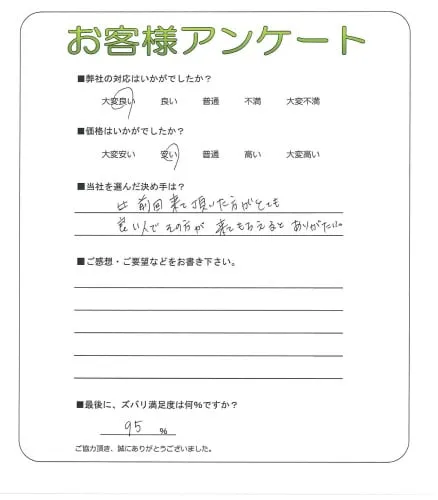 お客様アンケート
■弊社の対応はいかがでしたか?
大変良い 良い 普通 不満 大変不満
■価格はいかがでしたか?
大変安い 安い 普通 高い 大変高い
■当社を選んだ決め手は?
前回来て頂いた方がとても
良い人でその方が来てもらえるとありがたい。
■ご感想・ご要望などをお書き下さい。
■最後に、ズバリ満足度は何%ですか?
95 %
ご協力頂き、誠にありがとうございました。